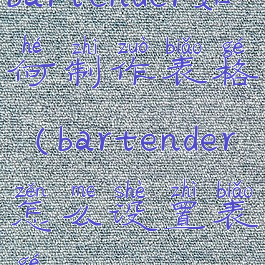 bartender如
hé zhì zuò biǎo gé
何制作表格
(bartender
zěn me shè zhì biǎo
怎么设置表
gé